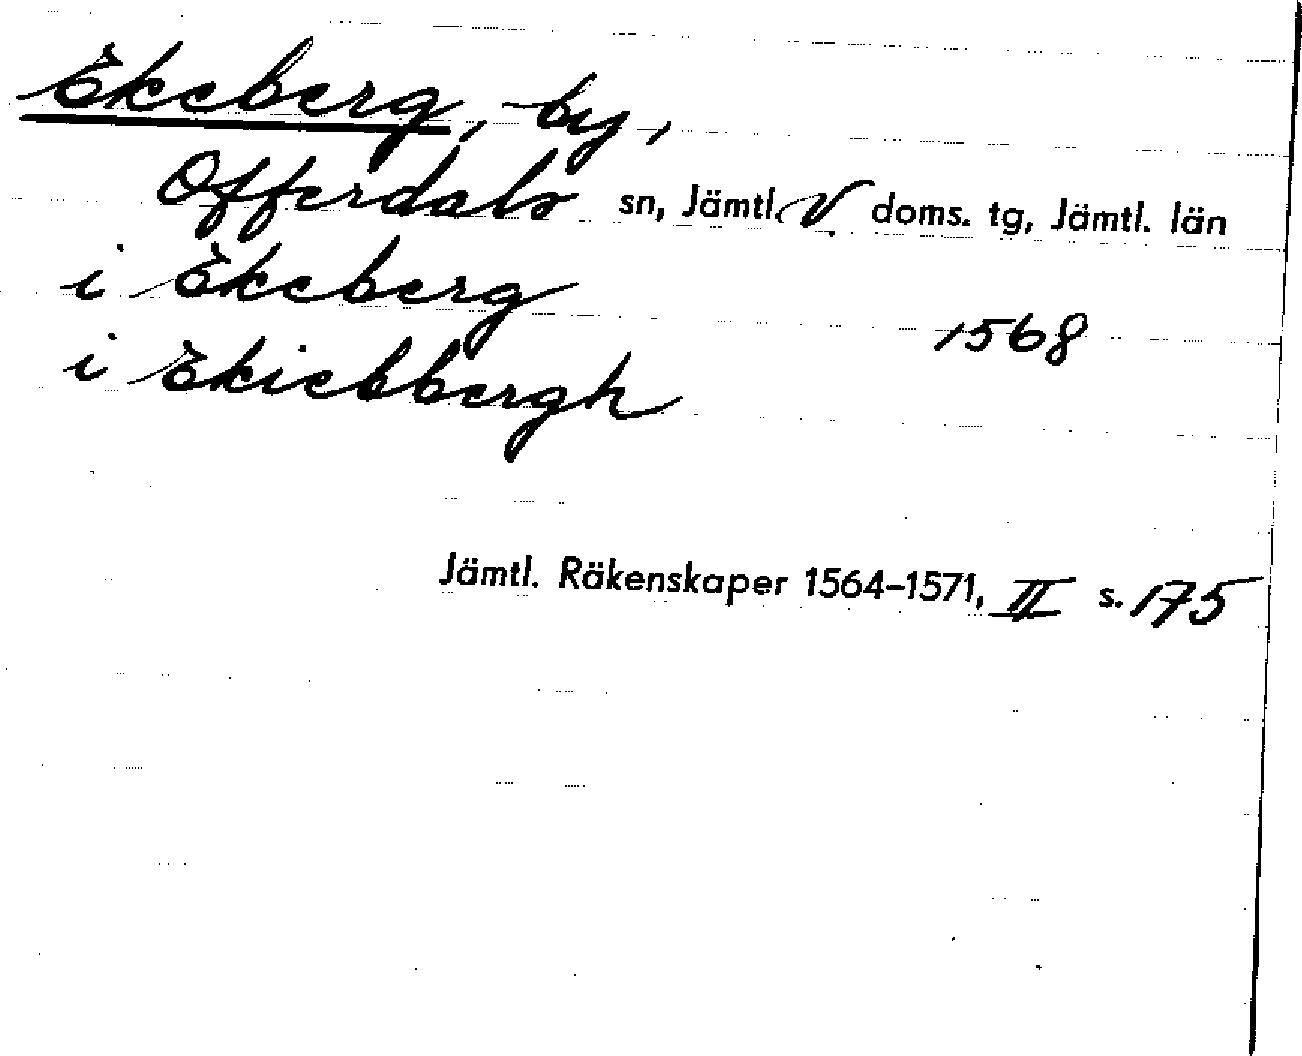 Ekeberg, by,
Offerdals sn, Jämtl. V. doms. tg, Jämtl. län
i Ekeberg
1568
i Ekiebbergh
Jämtl. Räkenskaper 1564–1571, II s. 175